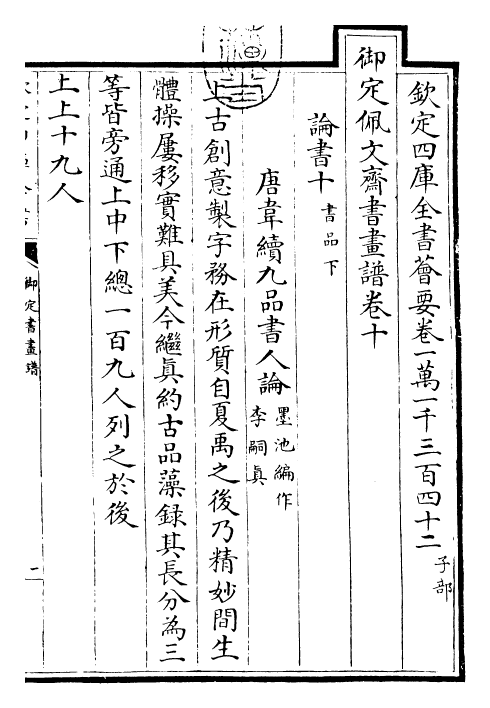 欽定四庫全書薈要卷一萬一千三百四十二 子部
御定佩文齋書畫譜卷十
論書十 書品下
唐韋續九品書人論 墨池編作李嗣真
上古創意製字務在形質自夏禹之後乃精妙間生
體操屢移實難具美今繼眞約古品藻録其長分為三
等皆旁通上中下總一百九人列之於後
上上十九人
御定書畫譜
一